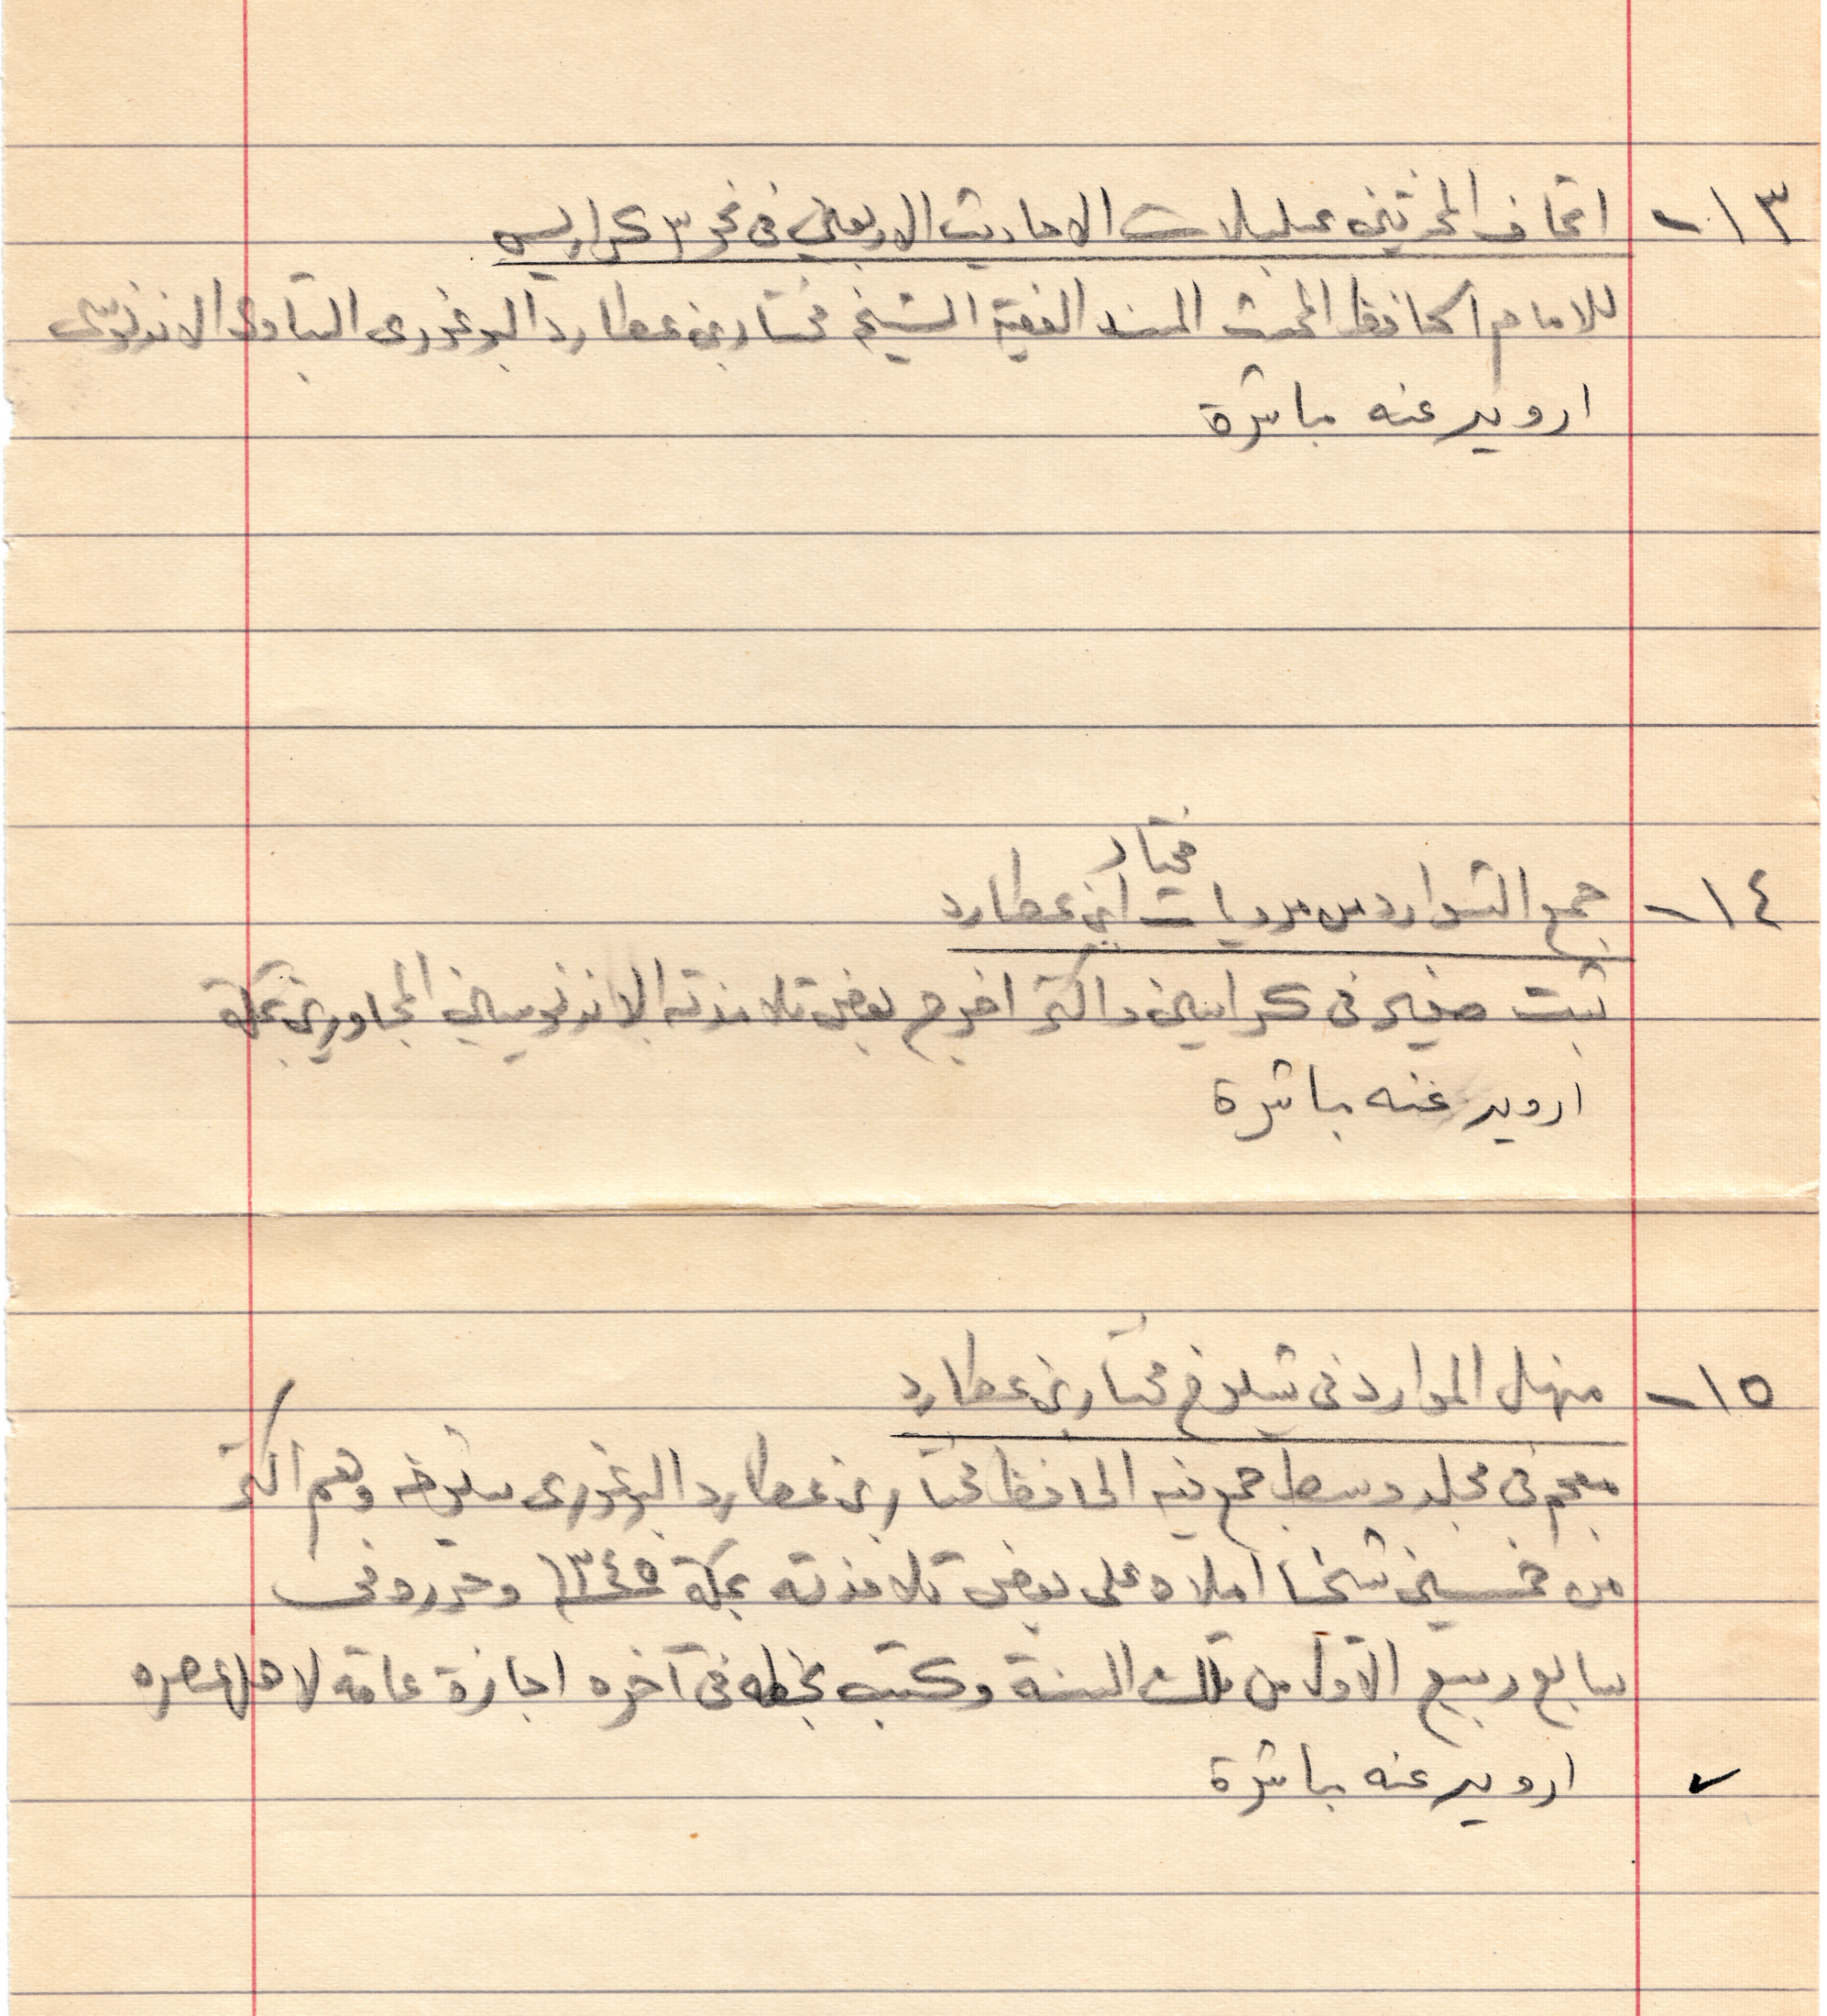 ١٣- اتحاف المحدثين بمسلسلات الاحاديث الاربعين فى نحو ٣ كراريس
للامام الحافظ المحدث المسند الفقيه الشيخ مختار بن عطارد البوغورى البتاوى الاندنوسى
ارويه عنه مباشرة
مختار
١٤- جمع الشوارد من مرويات ابن عطارد
ثبت صغير فى كراسين واكثر اخرج بعض تلامذته الاندنوسيين المجاورين بمكة
ارويه عنه مباشرة
١٥- منهل الموارد فى شيوخ مختار بن عطارد
معجم فى مجلد وسط جمع فيه الحافظ مختار بن عطارد البوغورى شيوخه وهم اكثر
من خمسين شيخا املاه على بعض تلامذته بمكة ١٣٤٥ وحرره فى
سابع ربيع الاول من تلك السنة وكتب بخطه فى آخره اجازة عامة لاهل عصره
ارويه عنه مباشرة